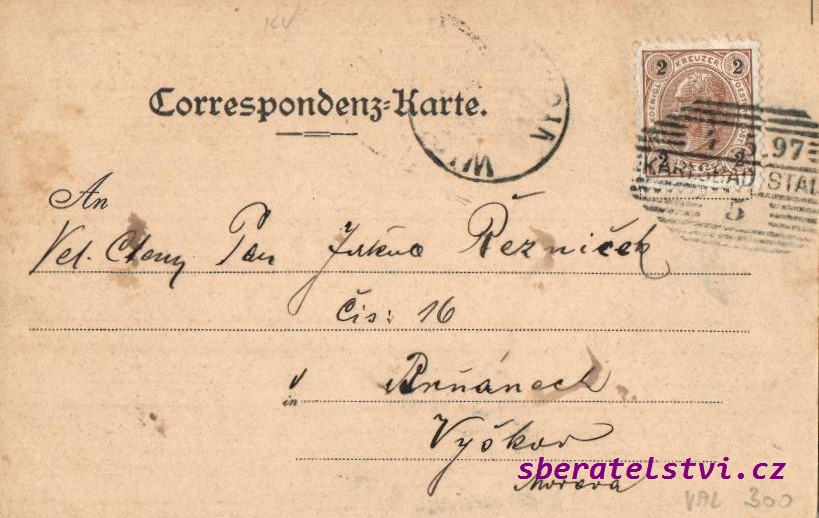 KV
Correspondenz-Karte.
2 KREUZER 2
2 2
97
KARLSBAD STADT
5
An
Vel. Cteny Pan Jakub Řezníček
Čis: 16
v
in Brňánech
Vyškov
Morava
sberatelstvi.cz
VAL 300